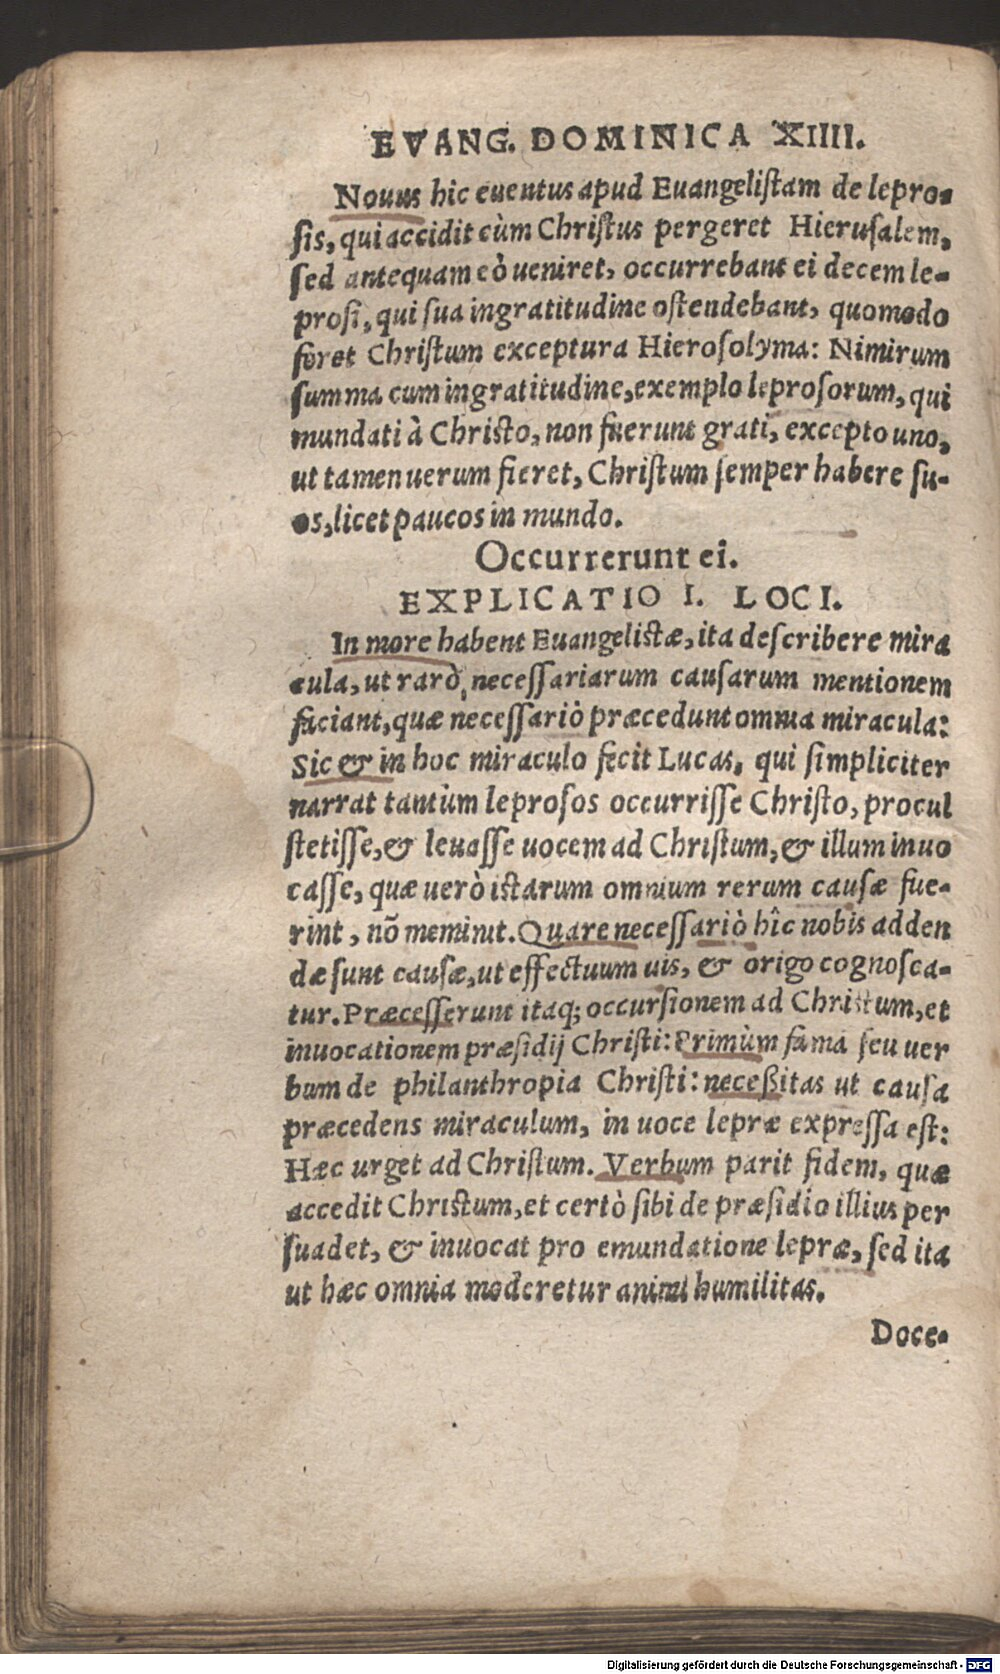 EVANG. DOMINICA XIIII.
Nouus hic euentus apud Euangelistam de lepro-
sis, qui accidit cùm Christus pergeret Hierusalem,
sed antequam eò ueniret, occurrebant ei decem le-
prosi, qui sua ingratitudine ostendebant, quomodo
foret Christum exceptura Hierosolyma: Nimirum
summa cum ingratitudine, exemplo leprosorum, qui
mundati à Christo, non fuerunt grati, excepto uno,
ut tamen uerum fieret, Christum semper habere su-
os, licet paucos in mundo.
Occurrerunt ei.
EXPLICATIO I. LOCI.
In more habent Euangelistæ, ita describere mira
cula, ut rarò necessariarum causarum mentionem
faciant, quæ necessariò præcedunt omnia miracula:
Sic & in hoc miraculo fecit Lucas, qui simpliciter
narrat tantùm leprosos occurrisse Christo, procul
stetisse, & leuasse uocem ad Christum, & illum inuo
casse, quæ uerò istarum omnium rerum causæ fue-
rint, nō meminit. Quare necessariò hîc nobis adden
dæ sunt causæ, ut effectuum uis, & origo cognosca-
tur. Præcesserunt itaq; occursionem ad Christum, et
inuocationem præsidij Christi: Primùm fama seu uer
bum de philanthropia Christi: neceßitas ut causa
præcedens miraculum, in uoce lepræ expressa est:
Hæc urget ad Christum. Verbum parit fidem, quæ
accedit Christum, et certò sibi de præsidio illius per
suadet, & inuocat pro emundatione lepræ, sed ita
ut hæc omnia moderetur animi humilitas.
Doce-
Digitalisierung gefördert durch die Deutsche Forschungsgemeinschaft - DFG